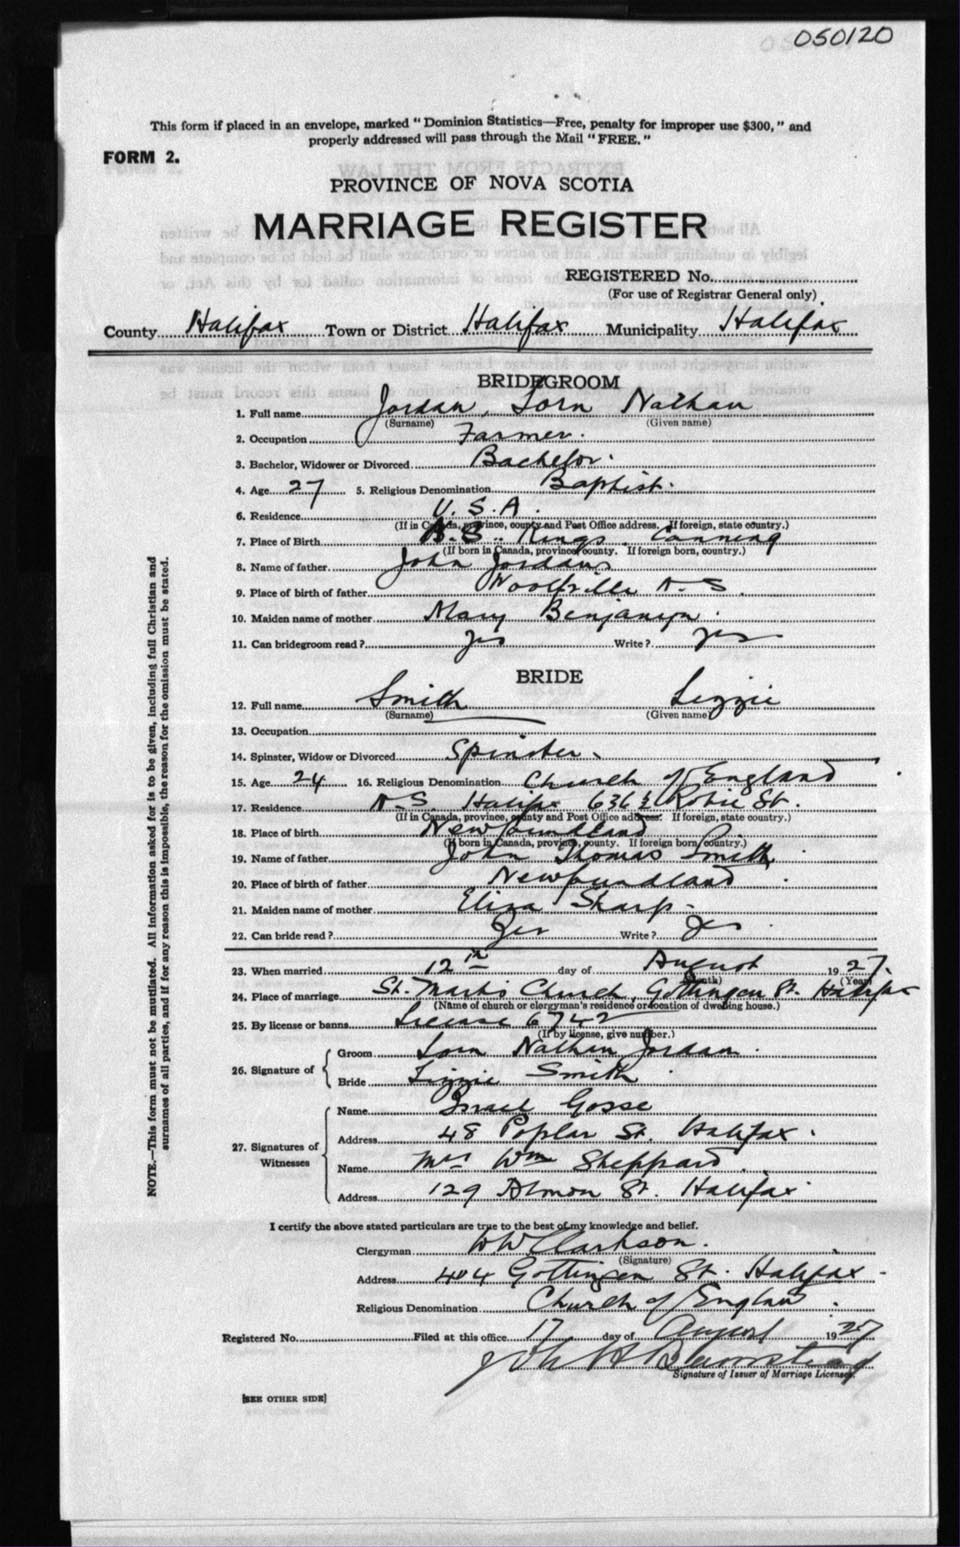 050120
This form if placed in an envelope, marked "Dominion Statistics—Free, penalty for improper use $300," and
properly addressed will pass through the Mail "FREE."
FORM 2.
PROVINCE OF NOVA SCOTIA
MARRIAGE REGISTER
REGISTERED No.
(For use of Registrar General only)
County Halifax Town or District Halifax Municipality Halifax
BRIDEGROOM
1. Full name Jordan, Lorn Nathan
(Surname) (Given name)
2. Occupation Farmer.
3. Bachelor, Widower or Divorced Bachelor.
4. Age 27 5. Religious Denomination Baptist.
6. Residence U.S.A.
(If in Canada, province, county and Post Office address. If foreign, state country.)
7. Place of Birth N.S. Kings. Canning
(If born in Canada, province, county. If foreign born, country.)
8. Name of father John Jordan
9. Place of birth of father Woolfville N-S.
10. Maiden name of mother Mary Benjamin.
11. Can bridegroom read? yes Write? yes
BRIDE
12. Full name Smith Lizzie
(Surname) (Given name)
13. Occupation
14. Spinster, Widow or Divorced Spinster
15. Age 24 16. Religious Denomination Church of England
17. Residence N-S. Halifax 636½ Robie St.
(If in Canada, province, county and Post Office address. If foreign, state country.)
18. Place of birth Newfoundland
(If born in Canada, province, county. If foreign born, country.)
19. Name of father John Thomas Smith
20. Place of birth of father Newfoundland
21. Maiden name of mother Eliza Sharp-
22. Can bride read? Yes Write? Yes
23. When married 12th day of August 1927.
(Month) (Year)
24. Place of marriage St. Mark's Church, Gottingen St. Halifax
(Name of church or clergyman's residence or location of dwelling house.)
25. By license or banns License 6742
(If by license, give number.)
26. Signature of
Groom Lorn Nathan Jordan.
Bride Lizzie Smith
27. Signatures of Witnesses
Name Israel Gosse
Address 48 Poplar St. Halifax.
Name Mrs Wm Sheppard
Address 129 Almon St. Halifax
I certify the above stated particulars are true to the best of my knowledge and belief.
Clergyman W W Clarkson.
(Signature)
Address 404 Gottingen St. Halifax-
Religious Denomination Church of England.
Registered No. Filed at this office 17 day of August 1927
John
Signature of Issuer of Marriage Licenses.
[SEE OTHER SIDE]
NOTE.—This form must not be mutilated. All information asked for is to be given, including full Christian and
surnames of all parties, and if for any reason this is impossible, the reason for the omission must be stated.